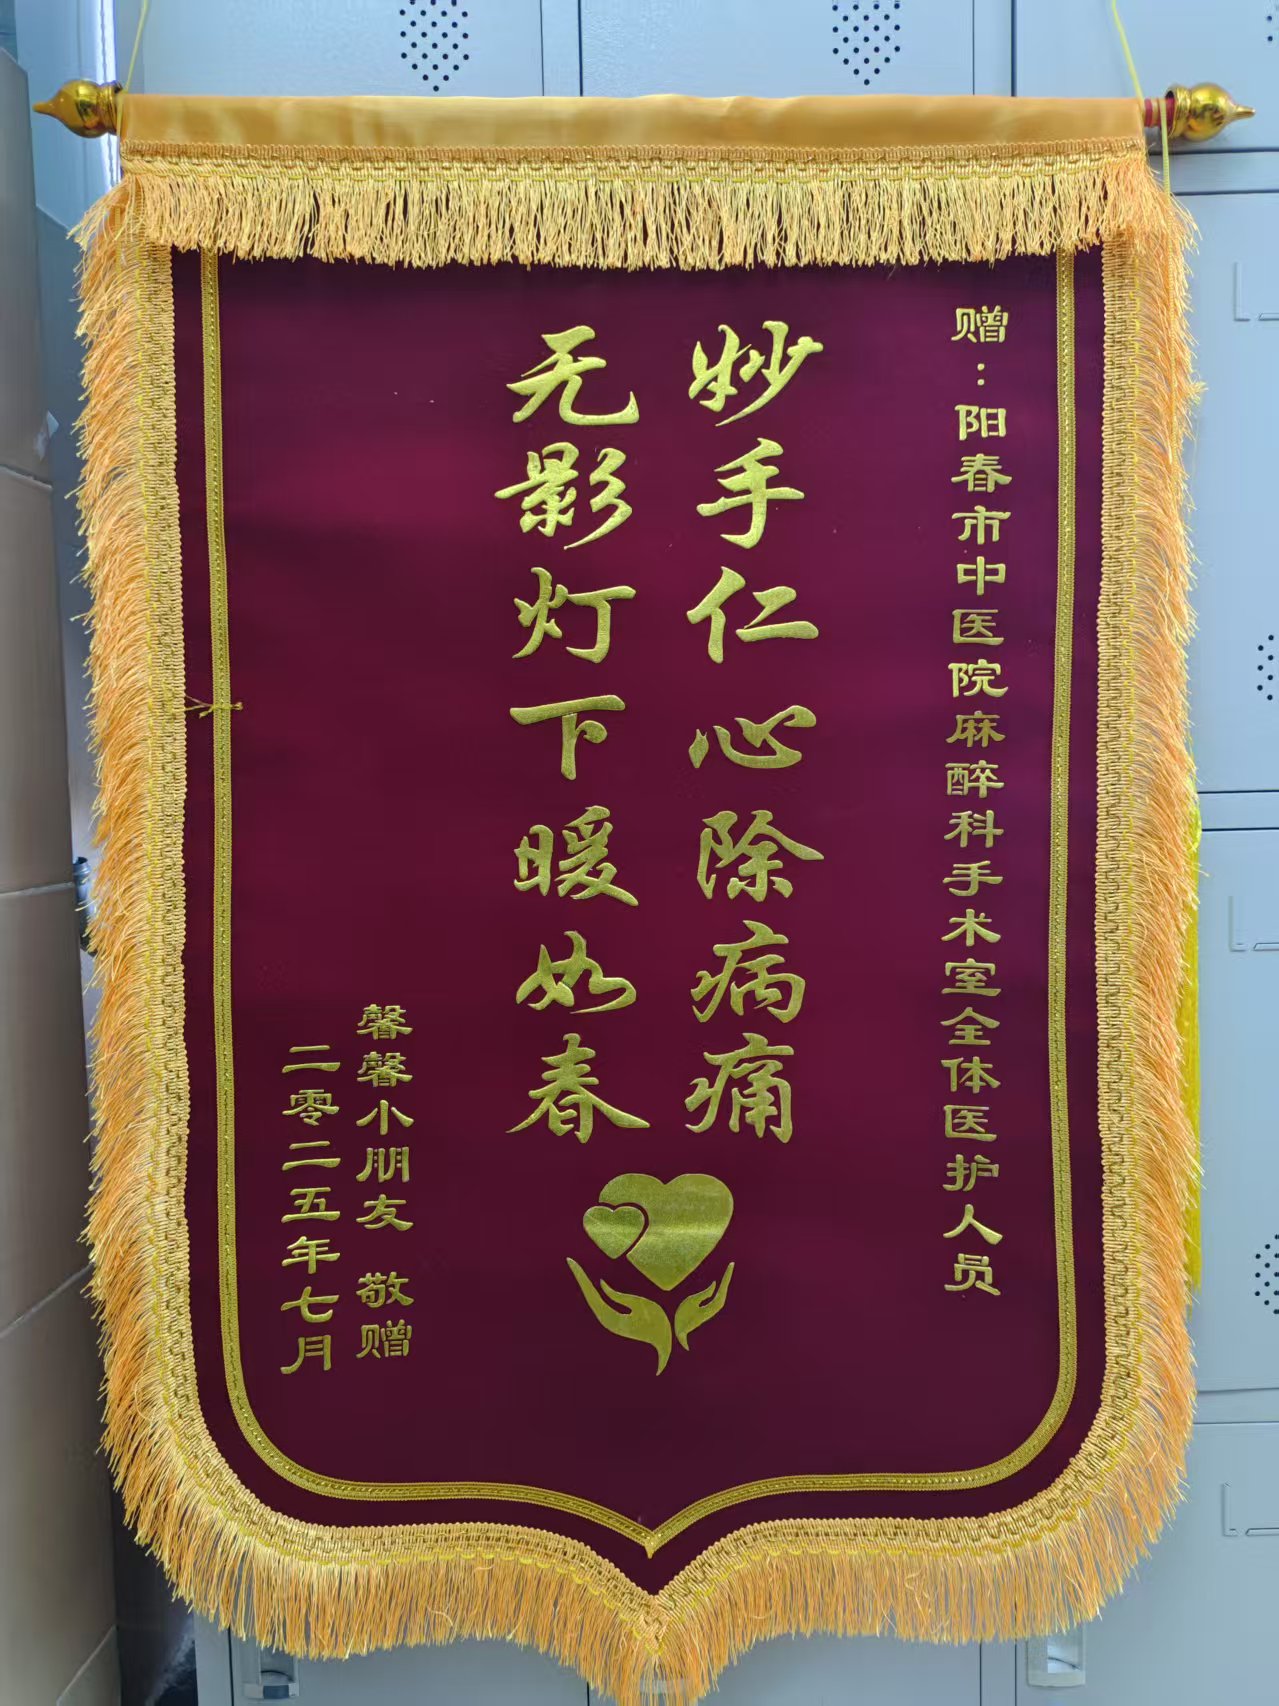 赠:阳春市中医院麻醉科手术室全体医护人员
妙手仁心除病痛
无影灯下暖如春
馨馨小朋友 敬赠
二零二五年七月